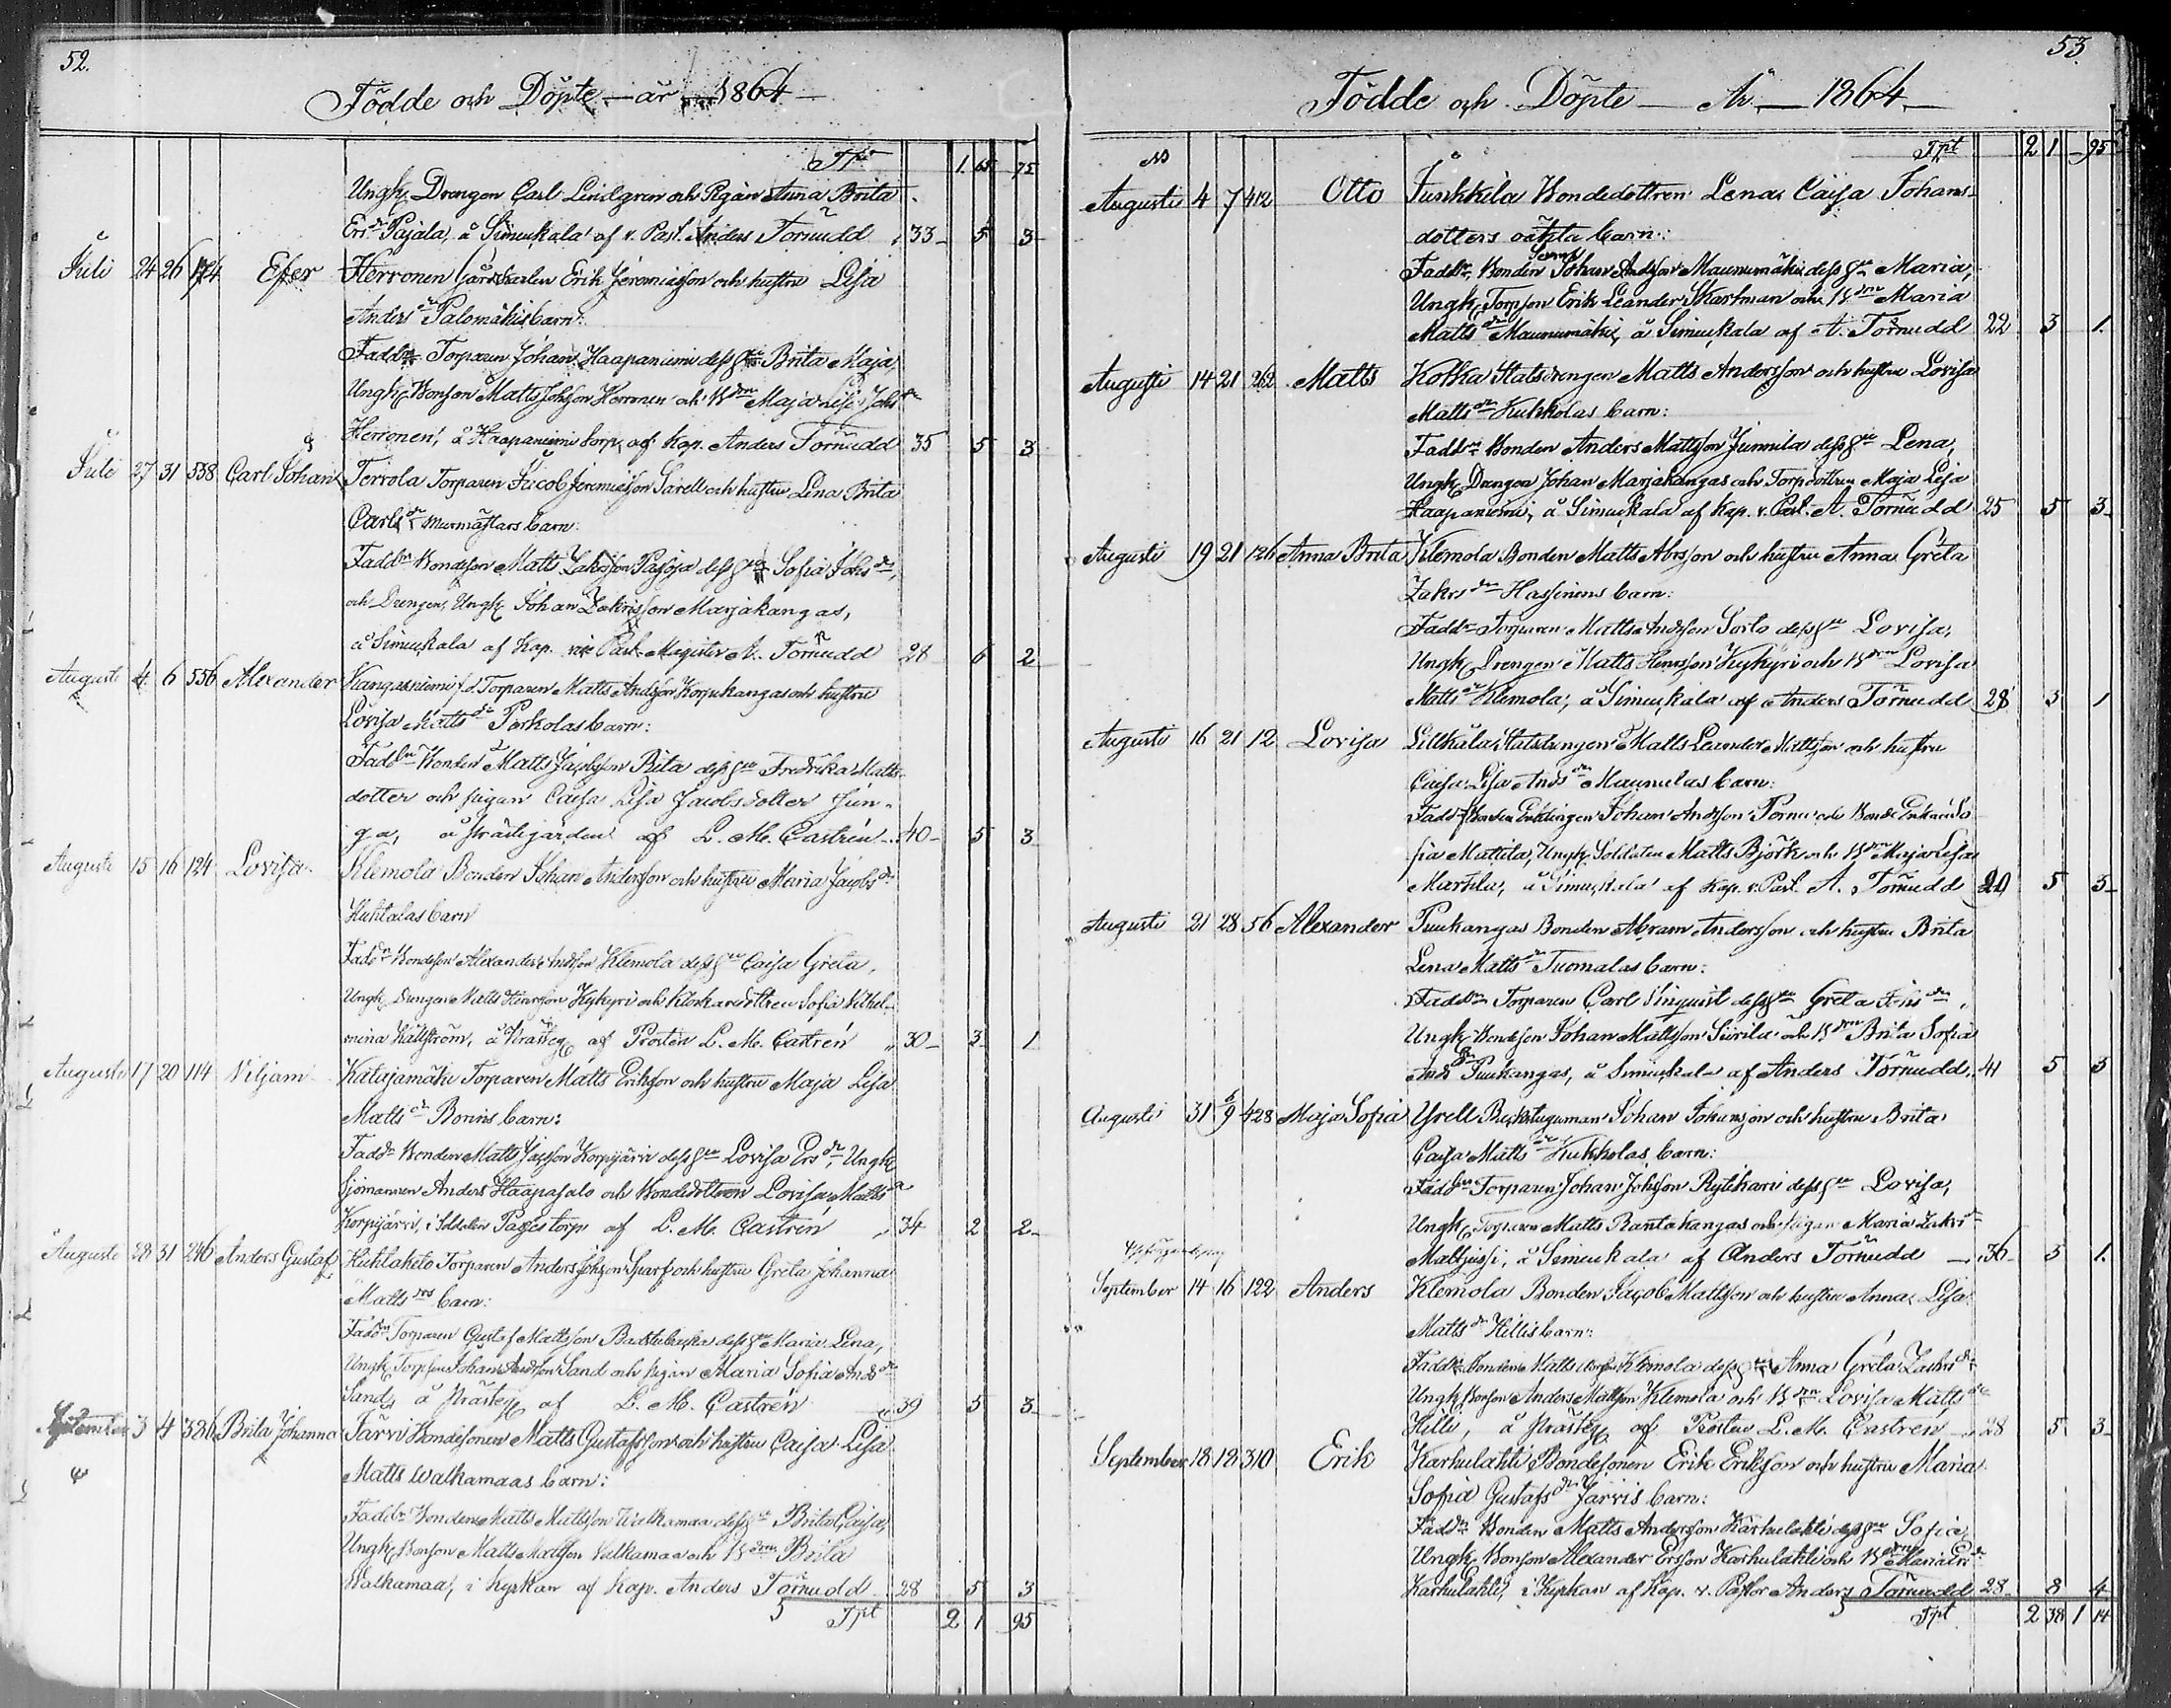 52.
Födde och Döpte – år – 1864 –
Tpt 1. 65 75
Ungk. Drengen Carl Lindgren och Pigan Anna Brita
Ers dr Pajala, å Simuskala af v. Past. Anders Törnudd 33 5 3
Juli 24 26 Efer Herronen Erik Jeremiasson och hustru Lisa
Anders dr Palomäkis barn:
Fadd. Torparen Johan Haapaniemi dess hu Brita Maja,
Ungk. Bonson Matts Johsson Herronen och Bdrn Maja Lisa Johs dr
Herronen, å Haapaniemi torp, af Kap. Anders Törnudd 35 5 3
Juli 27 31 538 Carl Johan Tervola Torparen Jacob Jeremiasson Sarell och hustru Lena Brita
Carls dr Murmästars barn:
Fadd. Bondeson Matts Zakrsson Pasoja dess hu Sofia Johs dr,
och Drengen, Ungk. Johan Zakrisson Marjakangas,
å Simuskala af Kap. vice Past. Magister A. Törnudd 28 6 2
Augusti 4 6 556 Alexander Kangasniemi f.d. Torparen Matts Andsson Korpukangas och hustru
Lovisa Matts dr Porkolas barn:
Fadd. Bonden Matts Jacobsson Rita dess hu Fredrika Matts-
dotter och pigan Caisa Lisa Jacobsdotter Jun-
ga, å Prästegården af L. M. Castrén 40 5 3
Augusti 15 16 124 Lovisa Klemola Bonden Johan Andersson och hustru Maria Jacobs dr
Huhtalas barn
Fadd. Bondeson Alexander Andsson Klemola dess hu Caisa Greta,
Ungk. Drengen Matts Henrsson Kykyri och Klockaredottren Sofia Vilhel-
mina Källström, å Prästeg. af Prosten L. M. Castrén 30 3 1
Augusti 17 20 114 Viljam Katajamäki Torparen Matts Eriksson och hustru Maja Lisa
Matts dr Bonins barn:
Fadd. Bonden Matts Korpijärvi dess hu Lovisa Ers dr, Ungk.
Sjömannen Anders Haapasalo och Bondedottren Lovisa Matts dr
Korpijärvi, i Soldaten Pages torp af L. M. Castrén 34 2 2
Augusti 28 31 246 Anders Gustaf Huhtaketo Torparen Anders Johsson Sparf och hustru Greta Johanna
Matts drs barn:
Fadd. Torparen Gustaf Mattsson dess hu Maria Lena,
Ungk. Torpson Johan Andsson Sand och pigan Maria Sofia Ands dr
Sand, å Prästeg. af L. M. Castrén 39 5 3
September 3 4 386 Brita Johanna Järvi Bondesonen Matts Gustafsson och hustru Caisa Lisa
Matts Walkamaas barn:
Fadd. Bonden Matts Mattsson Walkamaa dess hu Brita Caisa,
Ungk. Bonson Matts Mattsson Valkamaa och Bdrn Brita
Walkamaa, i kyrkan af Kap. Anders Törnudd 28 5 3
Tpt 2 1 95
53.
Födde och Döpte – År – 1864 –
Tpt 2 1 95
Augusti 4 7 412 Otto Junkkila Bondedottren Lena Caisa Johans-
dotters oäkta barn:
Fadd. Bonden Johan Andsson Maunumäki dess hu Maria,
Ungk. Torpson Erik Leander Skartman och Bdrn Maria
Matts dr Maunumäki, å Simuskala af A. Törnudd 22 3 1.
Augusti 14 21 262 Matts Kotka Statsdrengen Matts Andersson och hustru Lovisa
Matts dr Kukkolas barn:
Fadd. Bonden Anders Mattsson Junnila dess hu Lena,
Ungk. Drengen Johan Marjakangas och Torpdottren Maja Lisa
Haapaniemi, å Simuskala af Kap. v. Past. A. Törnudd 25 5 3
Augusti 19 21 126 Anna Brita Klemola Bonden Matts Abrsson och hustru Anna Greta
Zakrs dr Hassinens barn:
Fadd. Torparen Matts Andsson Sorto dess hu Lovisa,
Ungk. Drengen Matts Henrsson Kykyri och Bdrn Lovisa
Matts dr Klemola, å Simuskala af Anders Törnudd 28 3 1
Augusti 16 21 12 Lovisa Lillkåla Statsdrengen Matts Leander Mattsson och hustru
Caisa Lisa Ands dr Maunulas barn:
Fadd. Enklingen Johan Andsson Tornu och Bonde Enkan So-
fia Mattila, Ungk. Soldaten Matts Björk och Bdrn Maja Lisa
Marttila, å Simuskala af Kap. v. Past. A. Törnudd 20 5 3
Augusti 21 28 56 Alexander Puukangas Bonden Abram Andersson och hustru Brita
Lena Matts dr Tuomalas barn:
Fadd. Torparen Carl dess hu Greta Johs dr,
Ungk. Bondeson Johan Mattsson Siirilä och Bdrn Brita Sofia
Ands dr Puukangas, å Simuskala af Anders Törnudd 41 5 3
Augusti 31 428 Maja Sofia Yrell Backstuguman Johan Johansson och hustru Brita
Caisa Matts dr Kukkolas barn:
Fadd. Torparen Johan Johsson Rytikari dess hu Lovisa,
Ungk. Torparen Matts Rantakangas och pigan Maria Zakrs dr
Mattjussi, å Simuskala af Anders Törnudd 36 3 1.
September 14 16 122 Anders Klemola Bonden Jacob Mattsson och hustru Anna Lisa
Matts dr Hillis barn:
Fadd. Bonden Matts Klemola dess hu Anna Greta Zachrs dr
Ungk. Bonson Anders Mattsson Klemola och Bdrn Lovisa Matts dr
Hilli, å Prästeg. af Prosten L. M. Castrén 28 5 3
September 18 18 310 Erik Karhulahti Bondesonen Erik Eriksson och hustru Maria
Sofia Gustafs dr Järvis barn:
Fadd. Bonden Matts Andersson Karhulahti dess hu Sofia,
Ungk. Bonson Alexander Ersson Karhulahti och Bdrn Maria Ers dr
Karhulahti, i Kyrkan af Kap. v. Pastor Anders Törnudd 28 8 4
Tpt 2 38 1 14